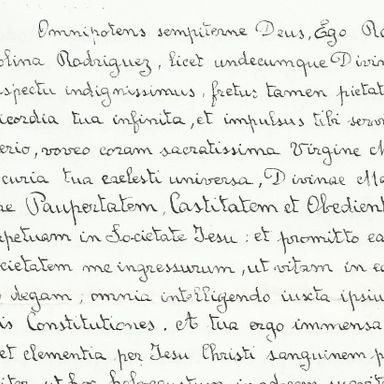 Omnipotens sempiterne Deus, Ego Ro
olina Rodriguez, licet undecumque Divin
spectu indignissimus, fretus tamen pietat
icordia tua infinita, et impulsus tibi servi
erio, voveo coram sacratissima Virgine M
curia tua caelesti universa, Divinae Ma
ae Paupertatem, Castitatem et Obedient
rpetuam in Societate Iesu: et promitto ea
cietatem me ingressurum, ut vitam in ea
degam; omnia intelligendo iuxta ipsiu
is Constitutiones. A tua ergo immensa
et clementia per Iesu Christi sanguinem p
itor, ut hoc holocaustum in odorem suavita